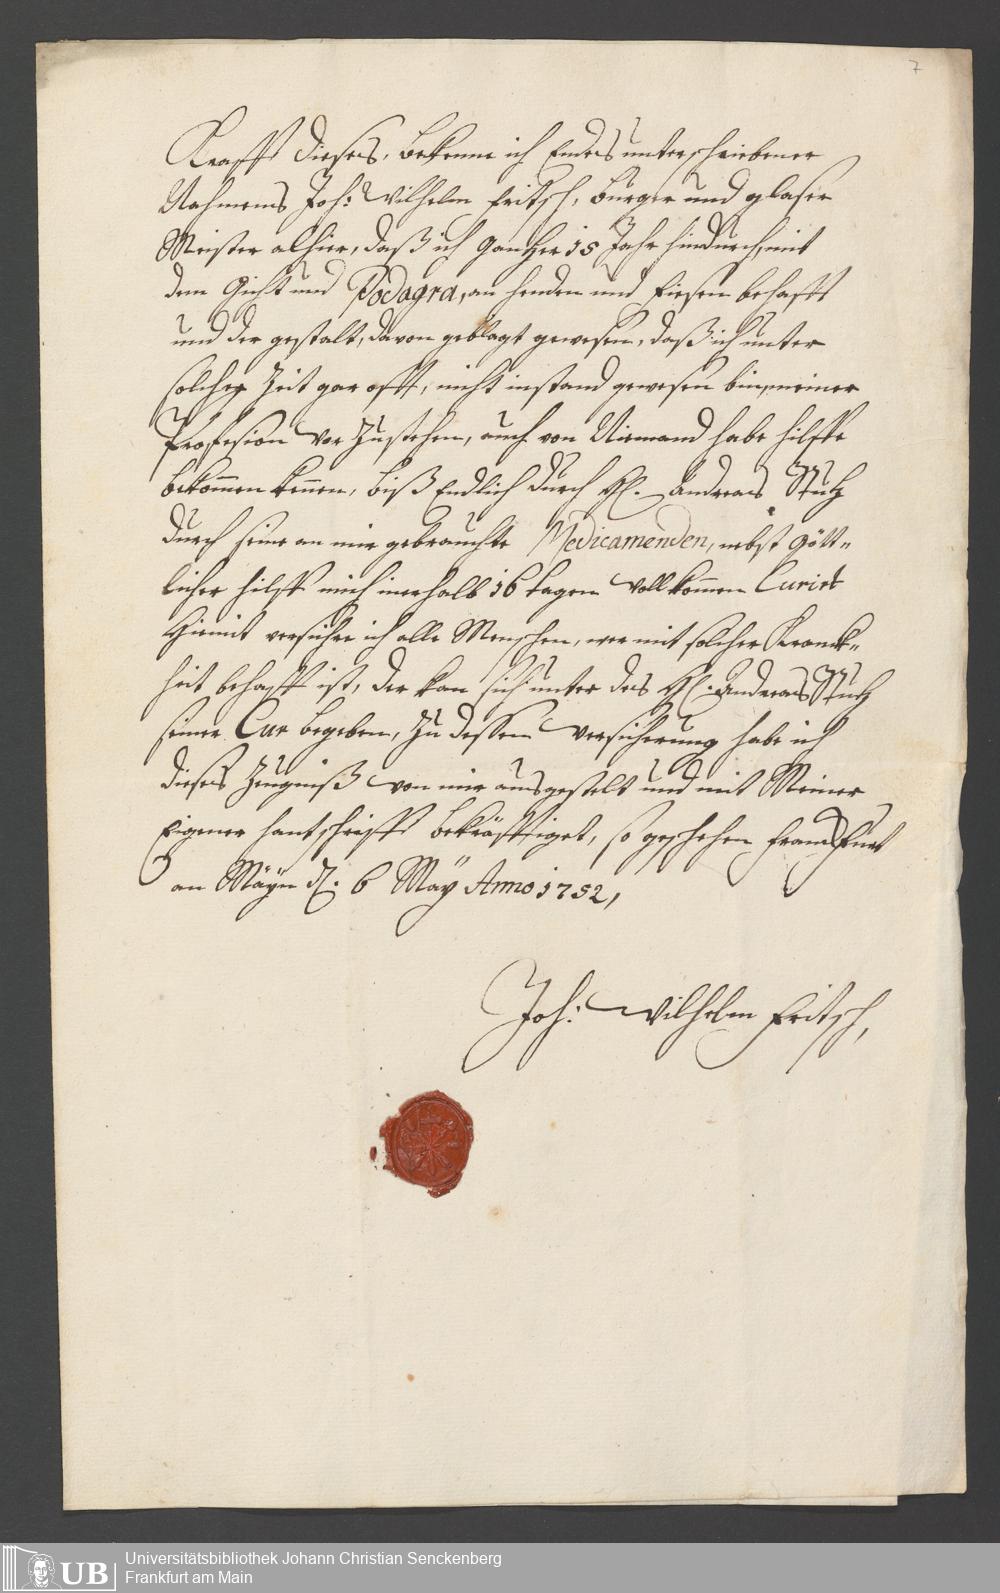 7
Krafft dieses, bekenne ich Endes unterschriebener
Nahmens Joh: Wilhelm Fritsch, burger und glaser
Meister alhier, daß ich gantzer 15 Jahr hindurch, mit
dem Gicht und Podagra, an henden und Fiesen behafft
und der gestalt, davon geblagt gewesen, daß ich unter
solcher Zeit gar offt, nicht instand gewesen bin, meiner
Profesion vor Zustehen, auch von Niemand habe hilffe
bekommen kennen, biß Endlich durch H. Andreas Stutz
durch seine an mir gebrauchte Medicamenden, nebst Gött-
licher hilff mich inerhalb 16 tagen vollkommen Curirt
Hiemit versichre ich alle Menschen, wer mit solcher Kranck-
heit behafft ist, der kan sich unter des H. Andreas Stutz
seiner Cur begeben, Zu dessen versicherung habe ich
dieses Zeugniß von mir ausgestelt und mit Meiner
Eigener hantschrifft bekräfftiget, so geschehen Franckfurt
am Mäyn d. 6 May Anno 1752,
Joh: Wilhelm Fritsch,
UB
Universitätsbibliothek Johann Christian Senckenberg
Frankfurt am Main